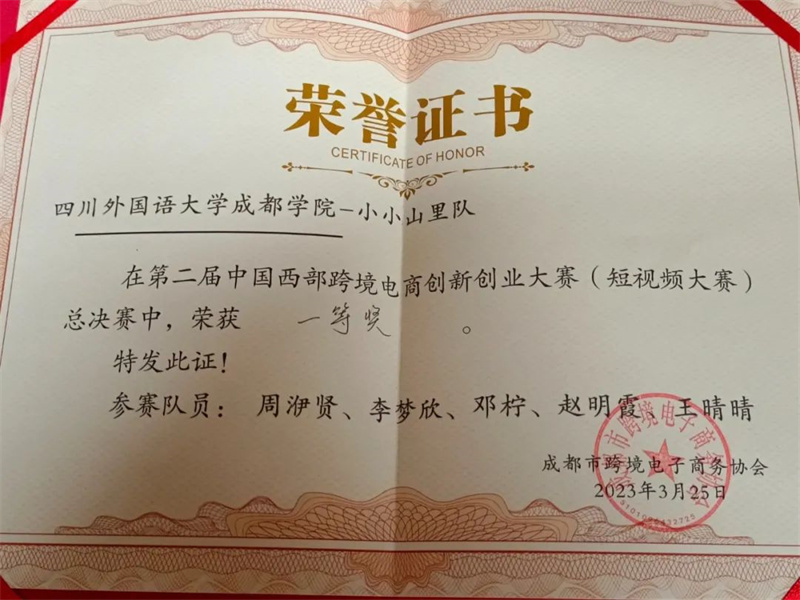 荣誉证书
CERTIFICATE OF HONOR
四川外国语大学成都学院-小小山里队
在第二届中国西部跨境电商创新创业大赛(短视频大赛)
总决赛中,荣获 一等奖 。
特发此证!
参赛队员:周洢贤、李梦欣、邓柠、赵明霞、王晴晴
成都市跨境电子商务协会
2023年3月25日
成都市跨境电子商务协会